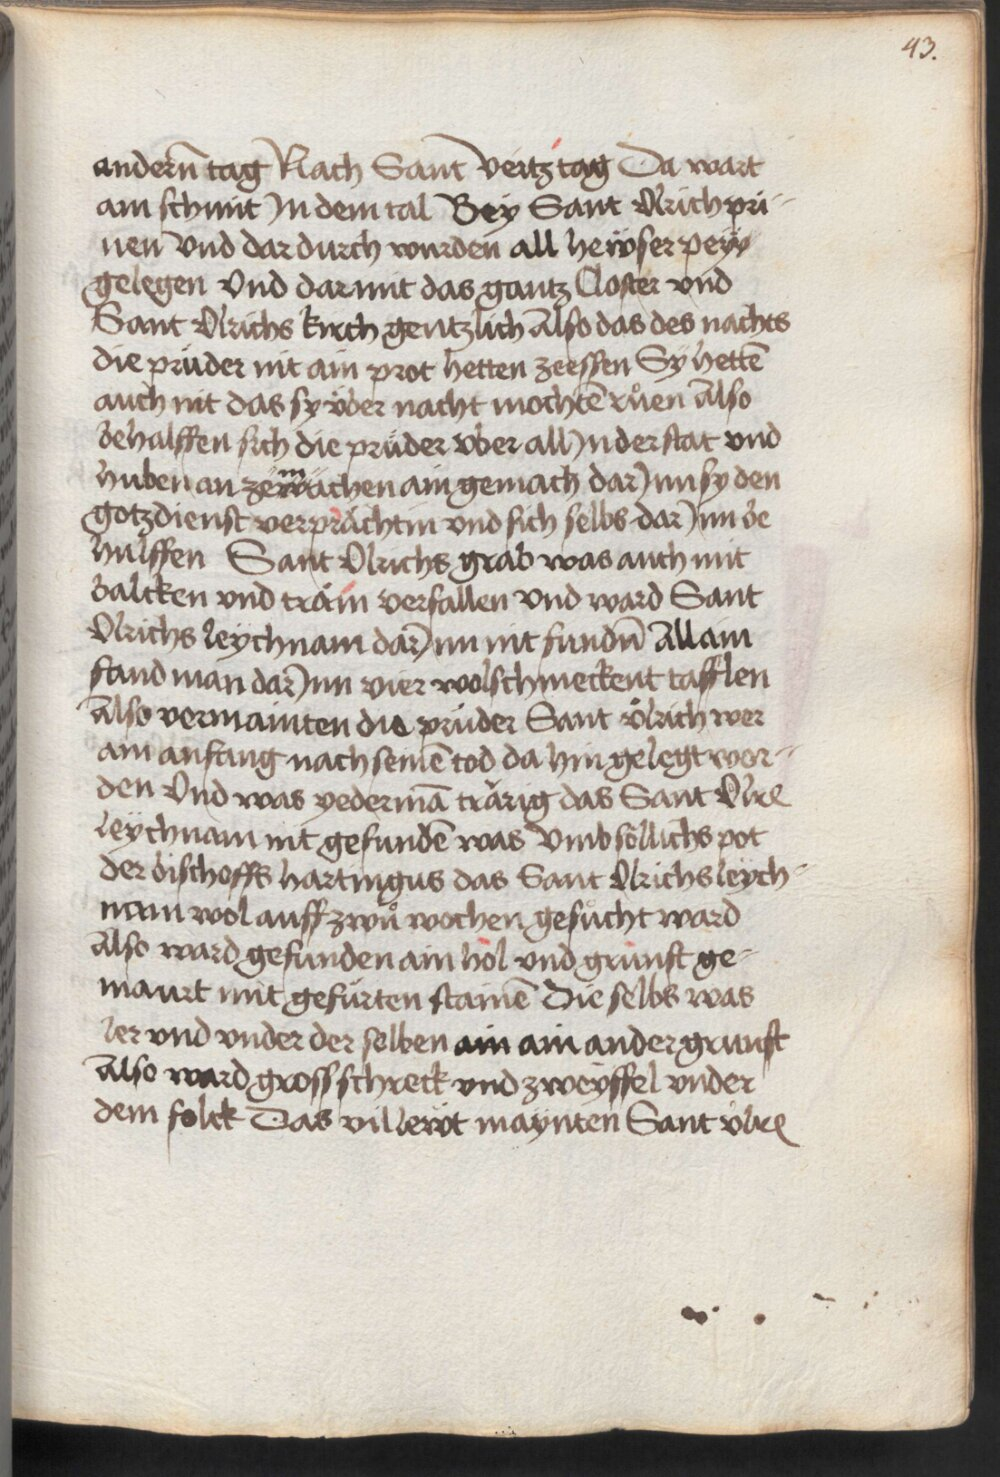 43.
andern̄ tag Nach Sant veitz tag Da wart
ain schmit Jn dem tal Bey Sant Vlrich pri-
nen Vnd dar durch wurden all heẅser peẏ
gelegen Vnd dar mit das gantz Closter vnd
Sant Vlrichs kirch gentzlich Also das des nachts
die prüder nit ain prot hetten zeessen Sy hettē
auch nit das sy v̈ber nacht mochtē růen Also
behalffen sich die prüder vber all Jn der stat vnd
huben an ze mächen ain gemach dar Jnn sy den
gotzdienst verprächtin vnd sich selbs dar Jnn be
hülffen Sant Vlrichs grab was auch mit
balcken vnd träm verfallen Vnd ward Sant
Vlrichs leychnam dar Jnn nit fundn̄ Allain
fand man dar Jnn vier wolschmeckent tafflen
Also vermainten die prüder Sant v̊lrich wer
am anfang nach seinē tod da hin gelegt wor-
den Vnd was yedermā trärig das Sant Vlrc
leychnam nit gefundē was Vmb sollichs pot
der bischoffs hartwigus das Sant Vlrichs leych-
nam wol auff zwů wochen gesůcht ward
Also ward gefunden ain höl vnd grünst ge-
maurt mit gefürten stainē Die selbs was
ler vnd vnder der selben ain ain ander grunst
Also ward gross schreck vnd zweyffel vnder
dem folck Das vil leẅt maynten Sant v̊lrc